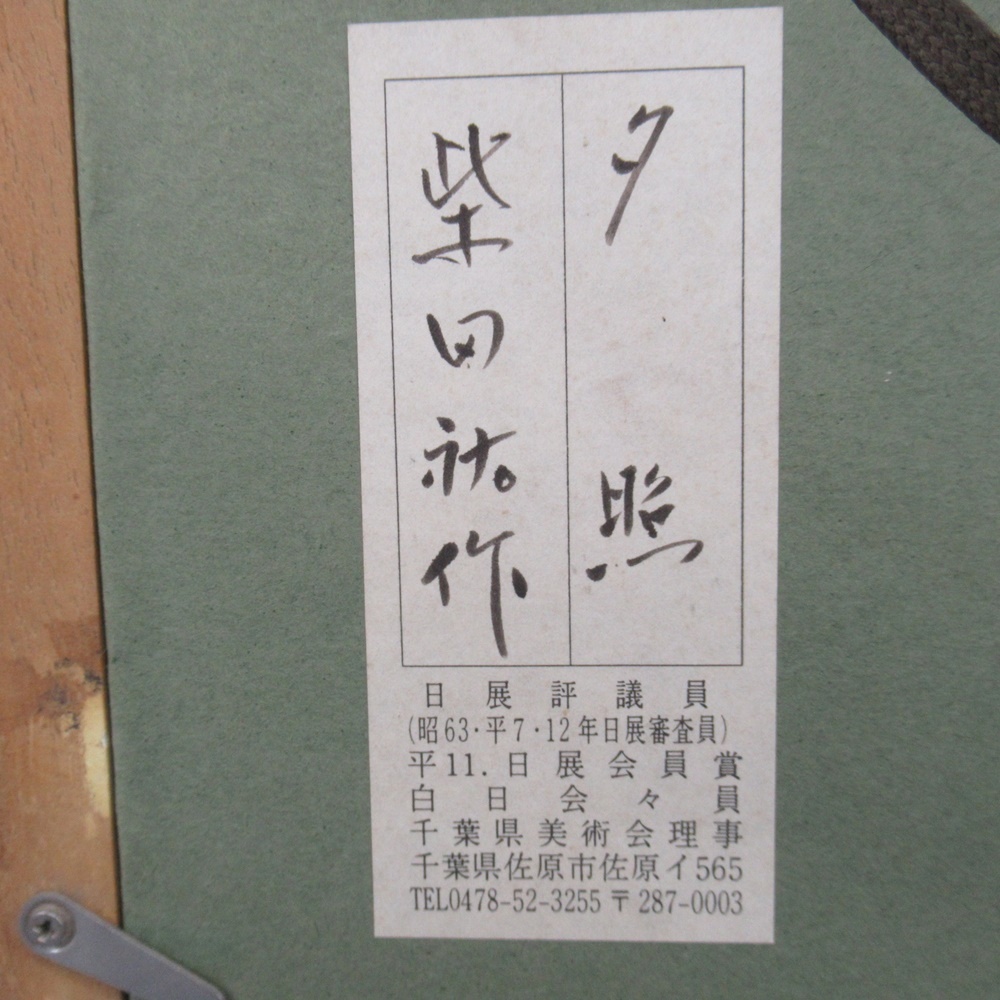 夕照
柴田祐作
日展評議員
(昭63·平7·12年日展審査員)
平11.日展会員賞
白日会々員
千葉県美術会理事
千葉県佐原市佐原イ565
TEL0478-52-3255〒287-0003